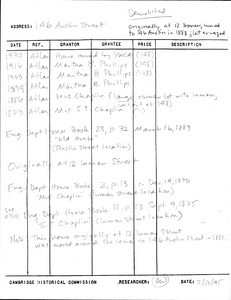 Demolished
ADDRESS: 146 Austin Street
Originally at 12 Inman, moved
to 146 Austin in 1888, lot enlarged
DATE REF. GRANTOR GRANTEE PRICE DESCRIPTION
1930 Atlas Home owned by
1916 Atlas Martha B. Phillips (198)
1903 Atlas Martha B. Phillips (198)
1894 Atlas Martha B. Phillips (198)
1886 Atlas Mrs Chaplin (large corner lot with Inman,
1873 Atlas Mrs S.T. Chaplin
Eng. Dept House Book 23, p 32 March 16, 1889
"Old House"
(Austin Street location)
Originally at 12 Inman Street
Eng. Dept House Book 2, p. 13 Dec 19, 1870
"Mrs Chaplin" (Inman Street location)
see also Eng Dept House Book 11, p 23 Sept 9, 1875
Chaplin (Inman Street location)
Note: This home originally at 12 Inman Street
was moved around the corner to 146 Austin Street in 1888.
CAMBRIDGE HISTORICAL COMMISSION RESEARCHER: DATE: